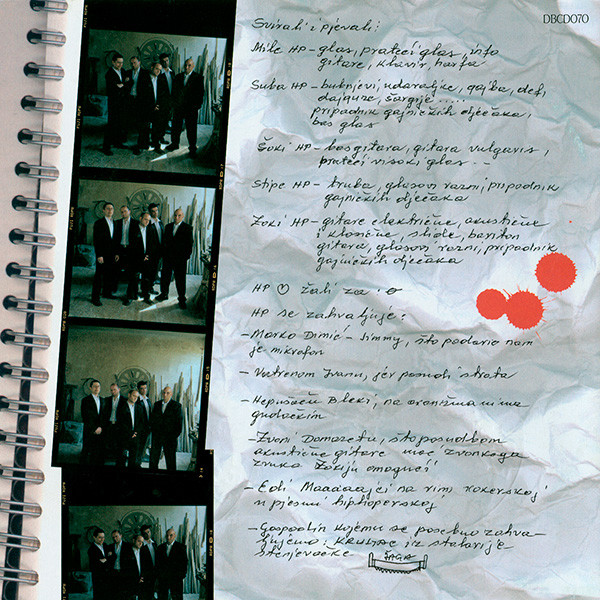 DBCD070
Svirali i pjevali:
Mile HP - glas, prateći glas, info
gitare, klavir, harfa
Suba HP - bubnjevi, udaraljke, gajba, def,
šargije....
pripadnik gajničkih dječaka,
bas glas
Šuki HP - bas gitara, gitara vulgaris,
prateći visoki glas - -
Stipe HP - truba, glasovi razni, pripadnik
gajničkih dječaka
Zoki HP - gitare električne, akustične
i klasične, slide, bariton
gitara, glasovi razni, pripadnik
gajničkih dječaka
HP žali za
HP se zahvaljuje:
- Marko Dimić - Jimmy, što podario nam
je mikrofon
- Vatrenom Ivanu, jer posudi
- Bleki, na aranžmanima
gudačkim
- Zvoni Domazetu, što posudbom
akustične gitare moć zvonkoga
zvuka Zokiju omogući
- Edi Maaaaajci na rimi rokerskoj
u pjesmi hiphoperskoj
- Gospodin kojemu se posebno zahva-
ljujemo: iz
stenjevačke
ŠAGA